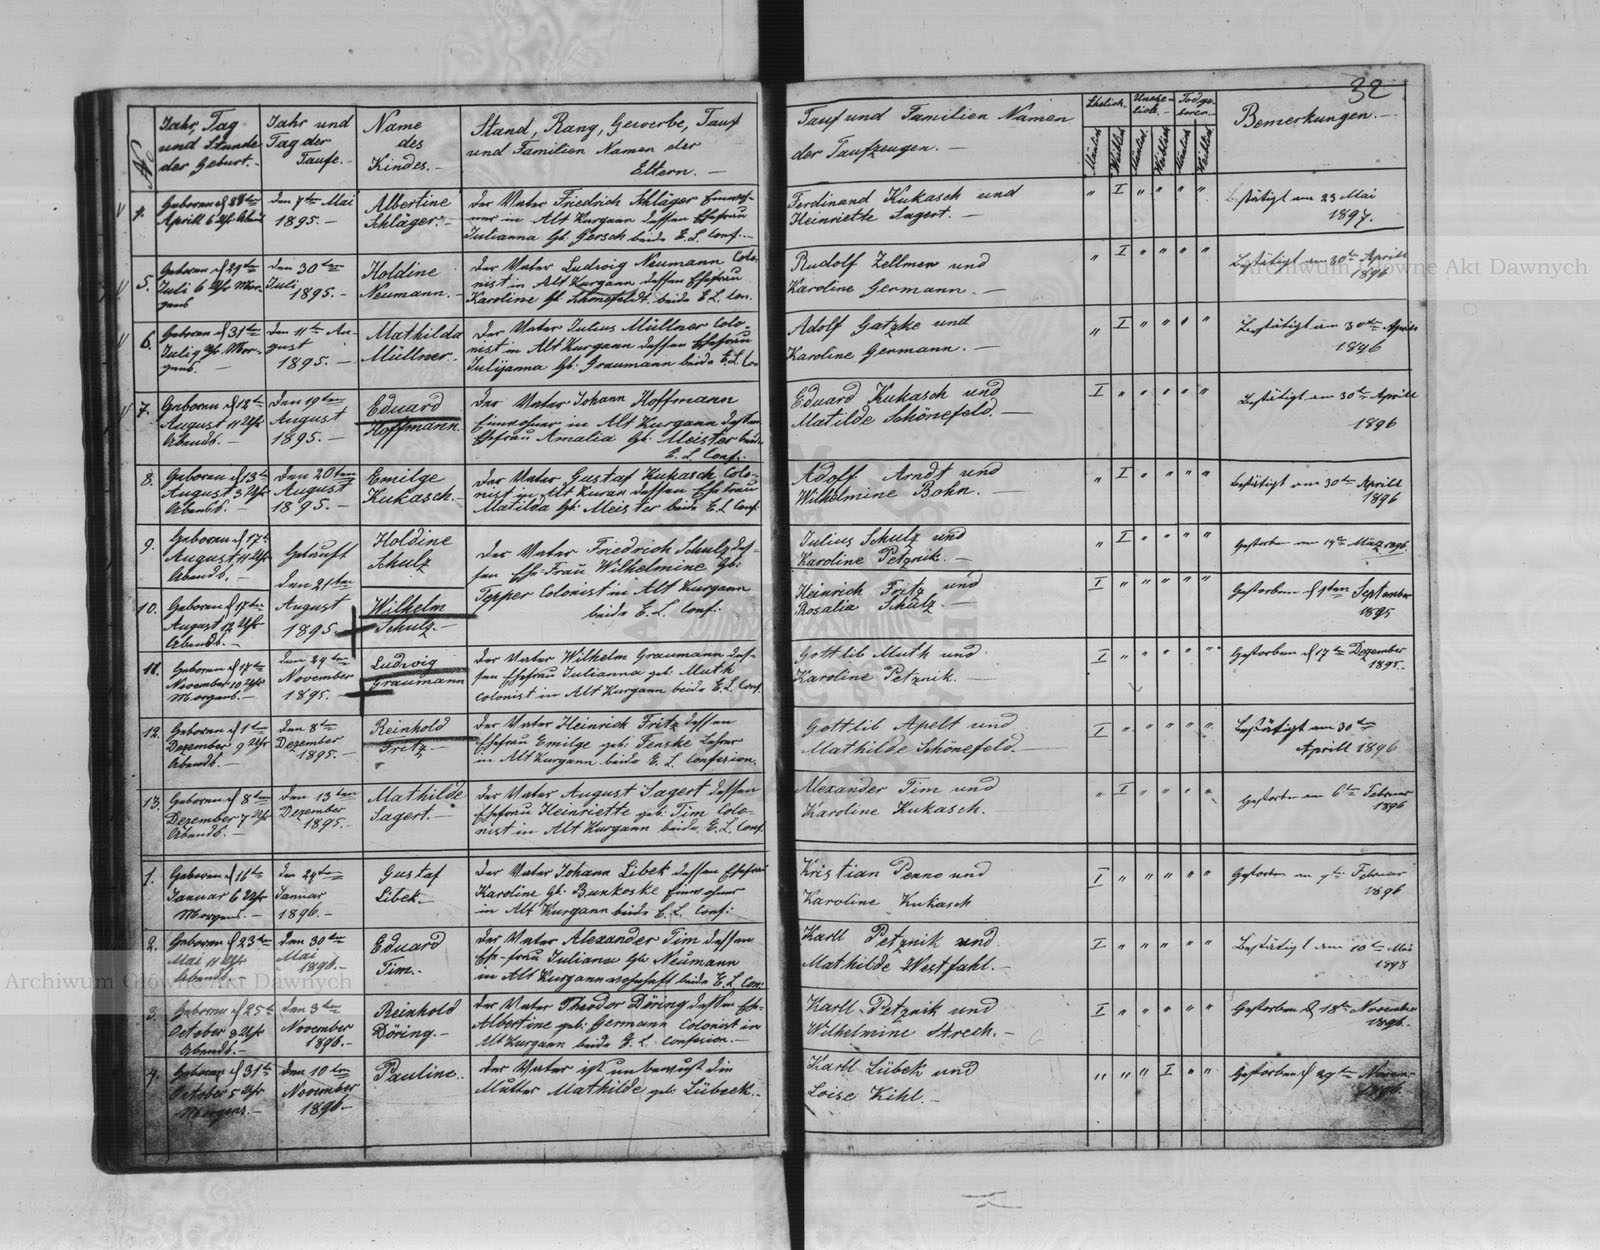 32
No
Jahr, Tag
und Stunde
der Geburt. –
Jahr und
Tag der
Taufe. –
Name
des
Kindes. –
Stand, Rang, Gewerbe, Tauf
und Familien Namen der
Eltern. –
Tauf und Familien Namen
der Taufzeugen. –
Ehelich.
Unehe-
lich.
Todge-
boren.
Mänlich
Weiblich
Mänlich
Weiblich
Mänlich
Weiblich
Bemerkungen. –
4.
Geboren d 28ten
Aprill 6 Uhr Abend
den 7ten Mai
1895. –
Albertine
Schläger. –
Der Vater Friedrich Schläger Einwoh-
ner in Alt Kurgann dessen Ehefrau
Julianna Gb. Gersch beide E. L. Conf. –
Ferdinand Kukasch und
Heinriette Sagert. –
" I " " " "
Bestätigt am 23 Mai
1897.
5.
Geboren d 29ten
Juli 6 Uhr Mor-
gens
den 30ten
Juli
1895. –
Holdine
Neumann. –
Der Vater Ludwig Neumann Colo-
nist in Alt Kurgann dessen Ehefrau
Karoline Gb. Schönefeldt beide E. L. Con.
Rudolf Zellmer und
Karoline Germann. –
" I " " " "
Bestätigt am 30ten Aprill
1896
6.
Geboren d 31ten
Juli Uhr Mor-
gens. –
den 11ten Au-
gust
1895. –
Mathilda
Müllner. –
Der Vater Julius Müllner Colo-
nist in Alt Kurgann dessen Ehefrau
Julijanna Gb. Graumann beide E. L. Co
Adolf Gatzke und
Karoline Germann. –
" I " " " "
Bestätigt am 30ten Aprill
1896
7.
Geboren d 12ten
August 11 Uhr
Abends. –
Den 19ten
August
1895. –
Eduard
Hoffmann.
Der Vater Johann Hoffmann
Einwohner in Alt Kurgann dessen
Ehefrau Amalia Gb. Meister beide
E. L. Conf.
Eduard Kukasch und
Matilde Schönefeld. –
I " " " " "
Bestätigt am 30ten Aprill
1896
8.
Geboren d 13ten
August 3 Uhr
Abends. –
Den 20ten
August
1895. –
Emilge
Kukasch. –
Der Vater Gustaf Kukasch Colo-
nist in Alt Kuran dessen Ehefrau
Matilda Gb. Meister beide E. L. Conf.
Adolf Arndt und
Wilhelmine Bohn. –
" I " " " "
Bestätigt am 30ten Aprill
1896
9.
Geboren d 17t
August 11 Uhr
Abends. –
Getauft
den 21ten
August
1895
Holdine
Schulz
Der Vater Friedrich Schulz des-
sen Ehe-Frau Wilhelmine Gb.
Tepper Colonist in Alt Kurgann
beide E. L. Conf.
Julius Schulz und
Karoline Petznik. –
" I " " " "
Gestorben am 19ten März 1896.
10.
Geboren d 17t
August 12 Uhr
Abends. –
Wilhelm
Schulz. –
Heinrich Fritz und
Rosalia Schulz. –
I " " " " "
Gestorben d 1ten September
1895
11.
Geboren d 18ten
November 10 Uhr
Morgens. –
den 29ten
November
1895. –
Ludwig
Graumann
Der Vater Wilhelm Graumann des-
sen Ehefrau Julianna geb. Muth
Colonist in Alt Kurgann beide E. L. Conf.
Gottlib Muth und
Karoline Petznik. –
I " " " " "
Gestorben d 17ten Dezember
1895. –
12.
Geboren d 1ten
Dezember 9 Uhr
Abends. –
Den 8ten
Dezember
1895. –
Reinhold
Fritz. –
Der Vater Heinrich Fritz dessen
Ehefrau Emilge geb. Fenske Lehrer
in Alt Kurgann beide E. L. Confesion.
Gottlib Apelt und
Mathilde Schönefeld. –
I " " " " "
Bestätigt am 30ten
Aprill 1896
13.
Geboren d 8ten
Dezember 7 Uhr
Abends. –
Den 13ten
Dezember
1895. –
Mathilde
Sagert. –
Der Vater August Sagert dessen
Ehefrau Heinriette geb. Tim Colo-
nist in Alt Kurgann beide E. L. Conf.
Alexander Tim und
Karoline Kukasch.
" I " " " "
Gestorben am 6ten Februar
1896
1.
Geboren d 16ten
Januar 6 Uhr
Morgens. –
den 29ten
Januar
1896. –
Gustaf
Libek. –
Der Vater Johann Libek dessen Ehefrau
Karoline Gb. Bunkoske Einwohner
in Alt Kurgann beide E. L. Conf.
Kristian Penno und
Karoline Kukasch
I " " " " "
Gestorben am 9ten Februar
1896
2.
Geboren d 23ten
Mai 11 Uhr
Abends. –
Den 30ten
Mai
1896. –
Eduard
Tim. –
Der Vater Alexander Tim dessen
Ehe-frau Juliana Gb. Neumann
in Alt Kurgann wohnhaft beide E. L. Con.
Karll Petznik und
Mathilde Westfahl. –
I " " " " "
Bestätigt am 10ten Mai
1898
3.
Geboren d 25ten
October 9 Uhr
Abends. –
den 3ten
November
1896. –
Reinhold
Döring. –
Der Vater Theodor Döring dessen Ehe-
Albertine geb. Germann Colonist in
Alt Kurgann beide E. L. Confesion. –
Karll Petznik und
Wilhelmine Strech. –
I " " " " "
Gestorben d 18ten November
1896. –
4.
Geboren d 31ten
October 5 Uhr
Morgens. –
den 10ten
November
1896. –
Pauline.
Der Vater ist unbewust die
Mutter Mathilde geb. Lübeck. –
Karll Lübek und
Loise Kihl. –
" " " I " "
Gestorben d 29ten Novem-
1896.
Archiwum Główne Akt Dawnych
Archiwum Główne Akt Dawnych